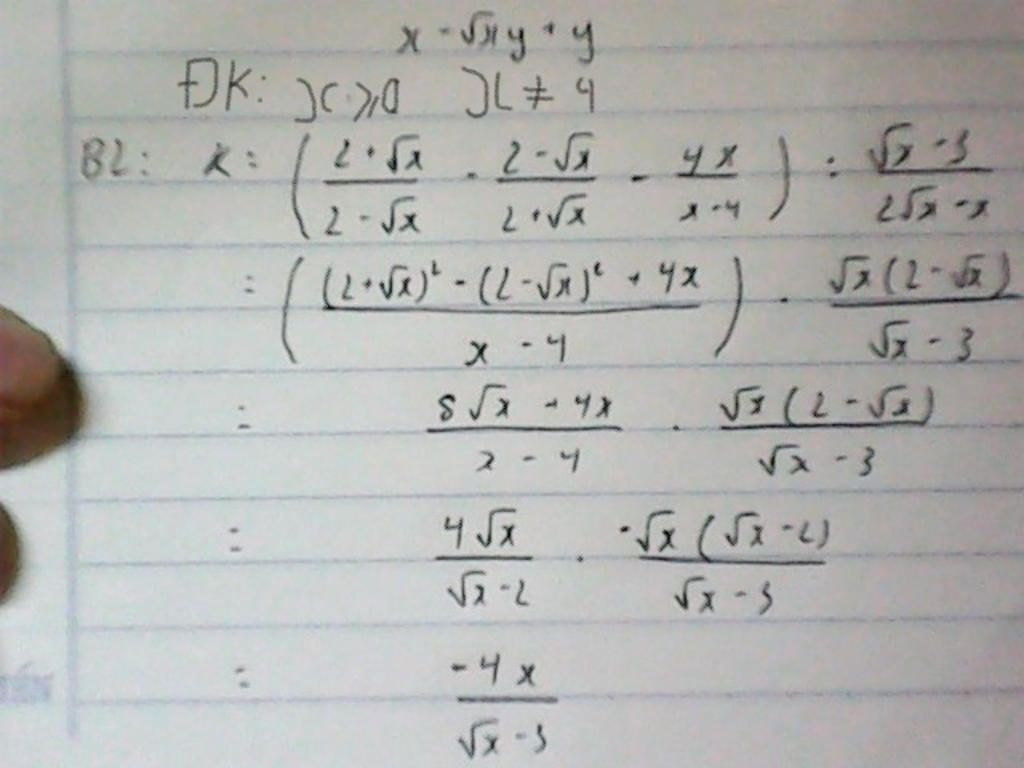 x - √xy + y
ĐK: x ≥ 0 x ≠ 4
B2: K = ( (2+√x)/(2-√x) - (2-√x)/(2+√x) - 4x/(x-4) ) : (√x-3)/(2√x-x)
= ( ((2+√x)² - (2-√x)² + 4x)/(x-4) ) . (√x(2-√x))/(√x-3)
= (8√x + 4x)/(x-4) . (√x(2-√x))/(√x-3)
= (4√x)/(√x-2) . (-√x(√x-2))/(√x-3)
= (-4x)/(√x-3)